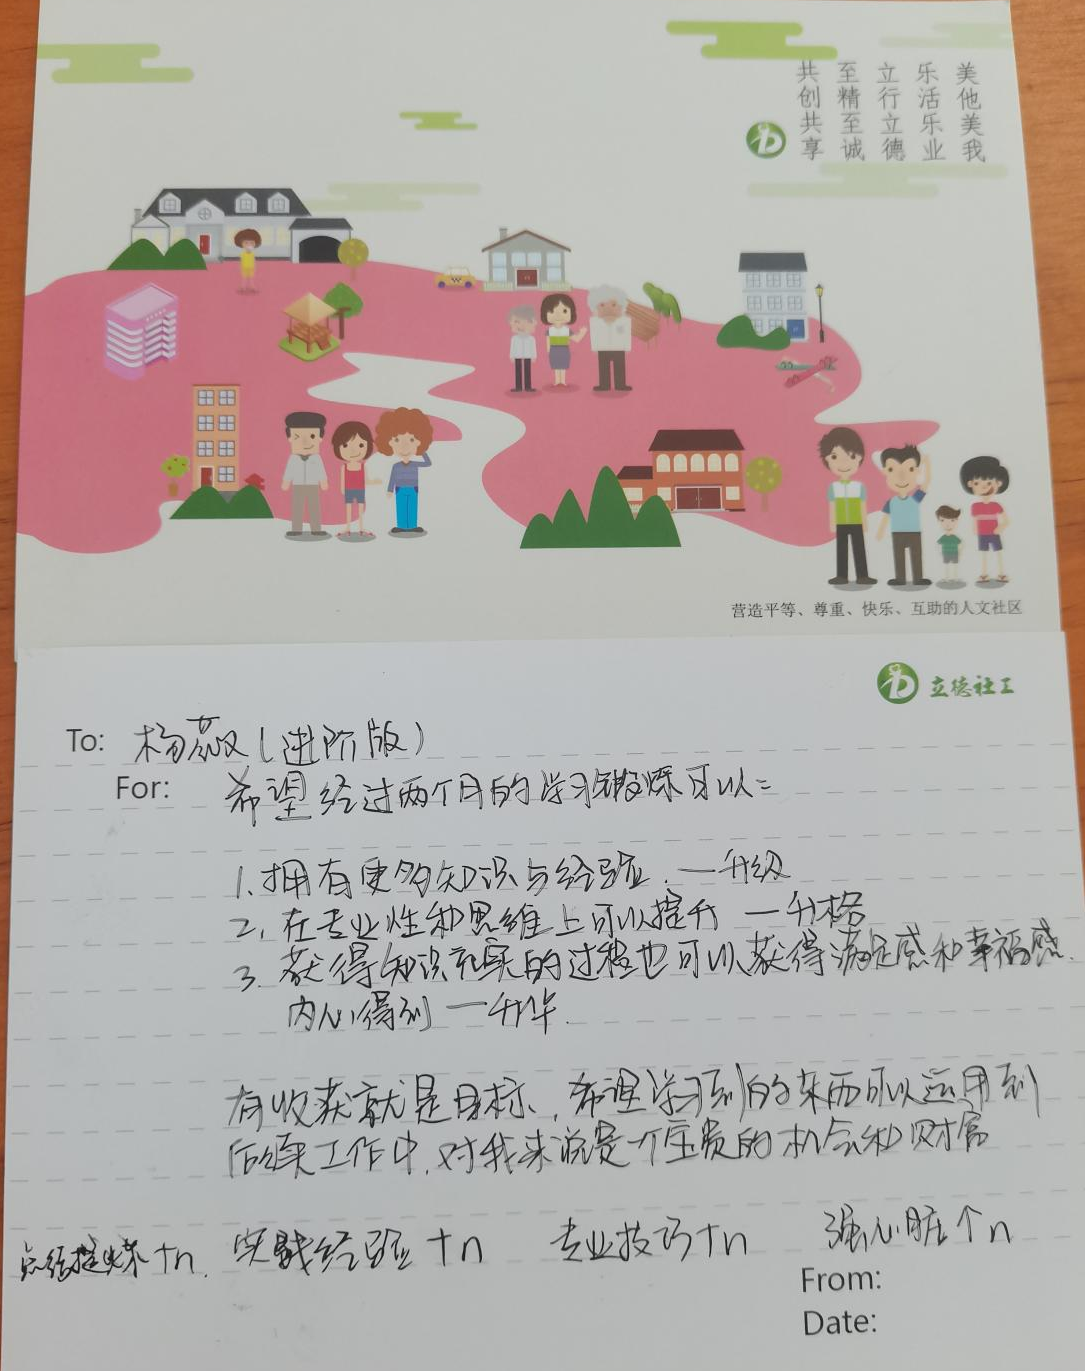 美他美我
乐活乐业
立行立德
至精至诚
共创共享
营造平等、尊重、快乐、互助的人文社区
立德社工
To: 杨薇(进阶版)
For: 希望经过两个月的学习锻炼可以:
1.拥有更多知识与经验.—升级
2.在专业性和思维上可以提升—升格
3.获得知识充实的过程也可以获得满足感和幸福感.
内心得到—升华.
有收获就是目标,希望学习到的东西可以运用到
后续工作中,对我来说是一个宝贵的机会和财富
总结提炼+n. 实战经验+n 专业技巧+n 强心脏↑n
From:
Date: